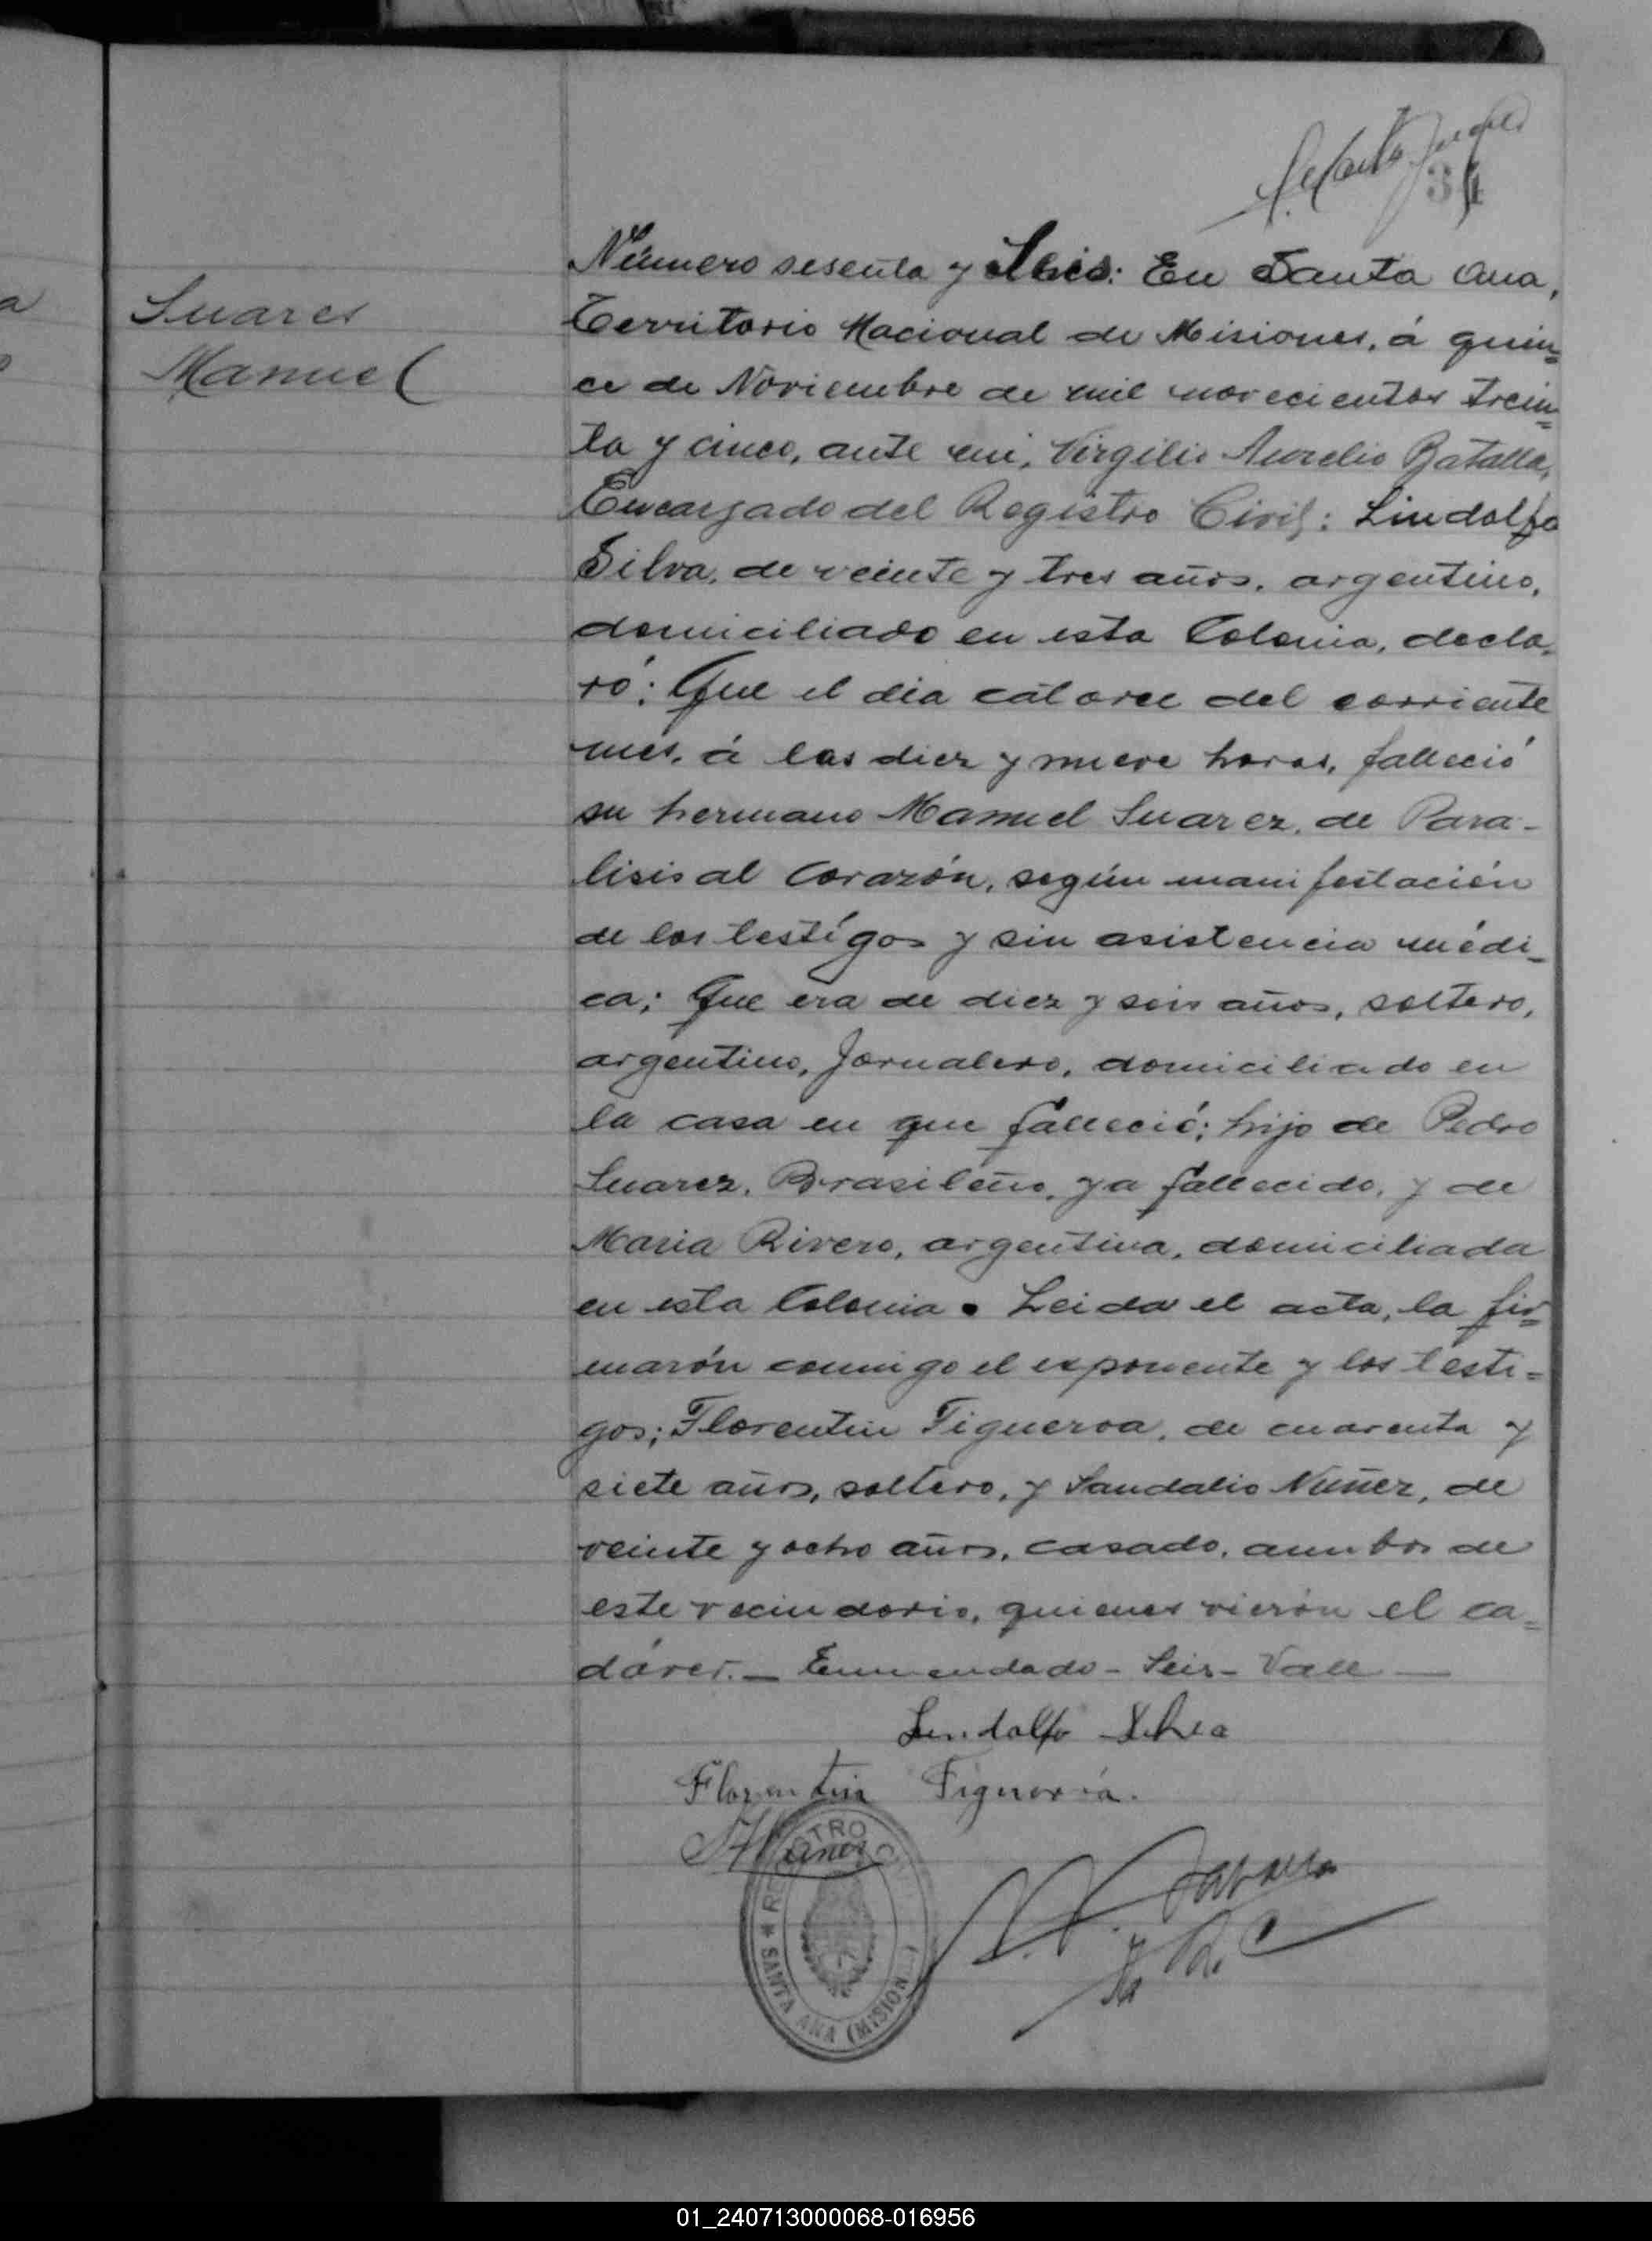 34
Suares
Manuel
Número sesenta y Seis: En Santa Ana,
Territorio Nacional de Misiones, á quin=
ce de Noviembre de mil novecientos trein=
ta y cinco, ante mi, Virgilio Aurelio Batalla,
Encargado del Registro Civil: Lindolfo
Silva, de veinte y tres años, argentino,
domiciliado en esta Colonia, decla-
ró: Que el dia catorce del corriente
mes, á las diez y nueve horas, falleció
su hermano Manuel Suarez, de Para-
lisis al Corazón, según manifestación
de los testígos y sin asistencia médi-
ca; Que era de diez y seis años, soltero,
argentino, Jornalero, domiciliado en
la casa en que falleció; hijo de Pedro
Suarez, Brasileño, ya fallecido, y de
Maria Rivero, argentina, domiciliada
en esta Colonia. Leida el acta, la fir=
marón conmigo el exponente y los testi=
gos; Florentin Figueroa, de cuarenta y
siete años, soltero, y Sandalio Nuñez, de
veinte y ocho años, casado, ambos de
este vecindario, quienes vierón el ca=
dáver.— Enmendado - Seis - Vale —
Lindolfo Silva
Florentin Figueroa.
REGISTRO
SANTA ANA (MISION
Batalla
E. R. C
01_240713000068-016956